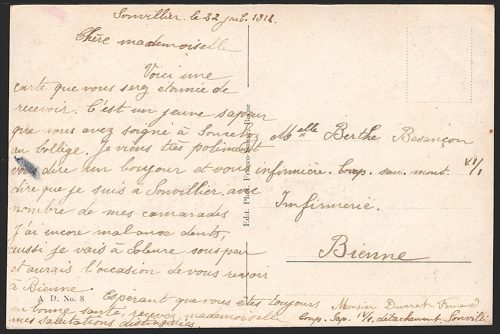 Sonvillier, le 22 juil. 1918
Chère mademoiselle
Voici une
carte que vous serez étonnée de
recevoir. C'est un jeune sapeur
que vous avez soigné à Sonceboz
au collège. Je viens très poliment
vous dire un bonjour et vous
dire que je suis à Sonvillier avec
nombre de mes camarades
J'ai encore mal aux dents,
aussi je vais à Soleure sous peu
et aurais l'occasion de vous revoir
à Bienne
Espérant que vous êtes toujours
en bonne santé, recevez mademoiselle
mes salutations distinguées
A D. No. 8
Edit. Phot. Franco-Suisse, Berne
Melle Berthe Besançon
infirmière. Comp. san. mont. VI/1
Infirmerie.
Bienne
Ducret
Comp. Sap. IV/1, détachement, Sonvillier